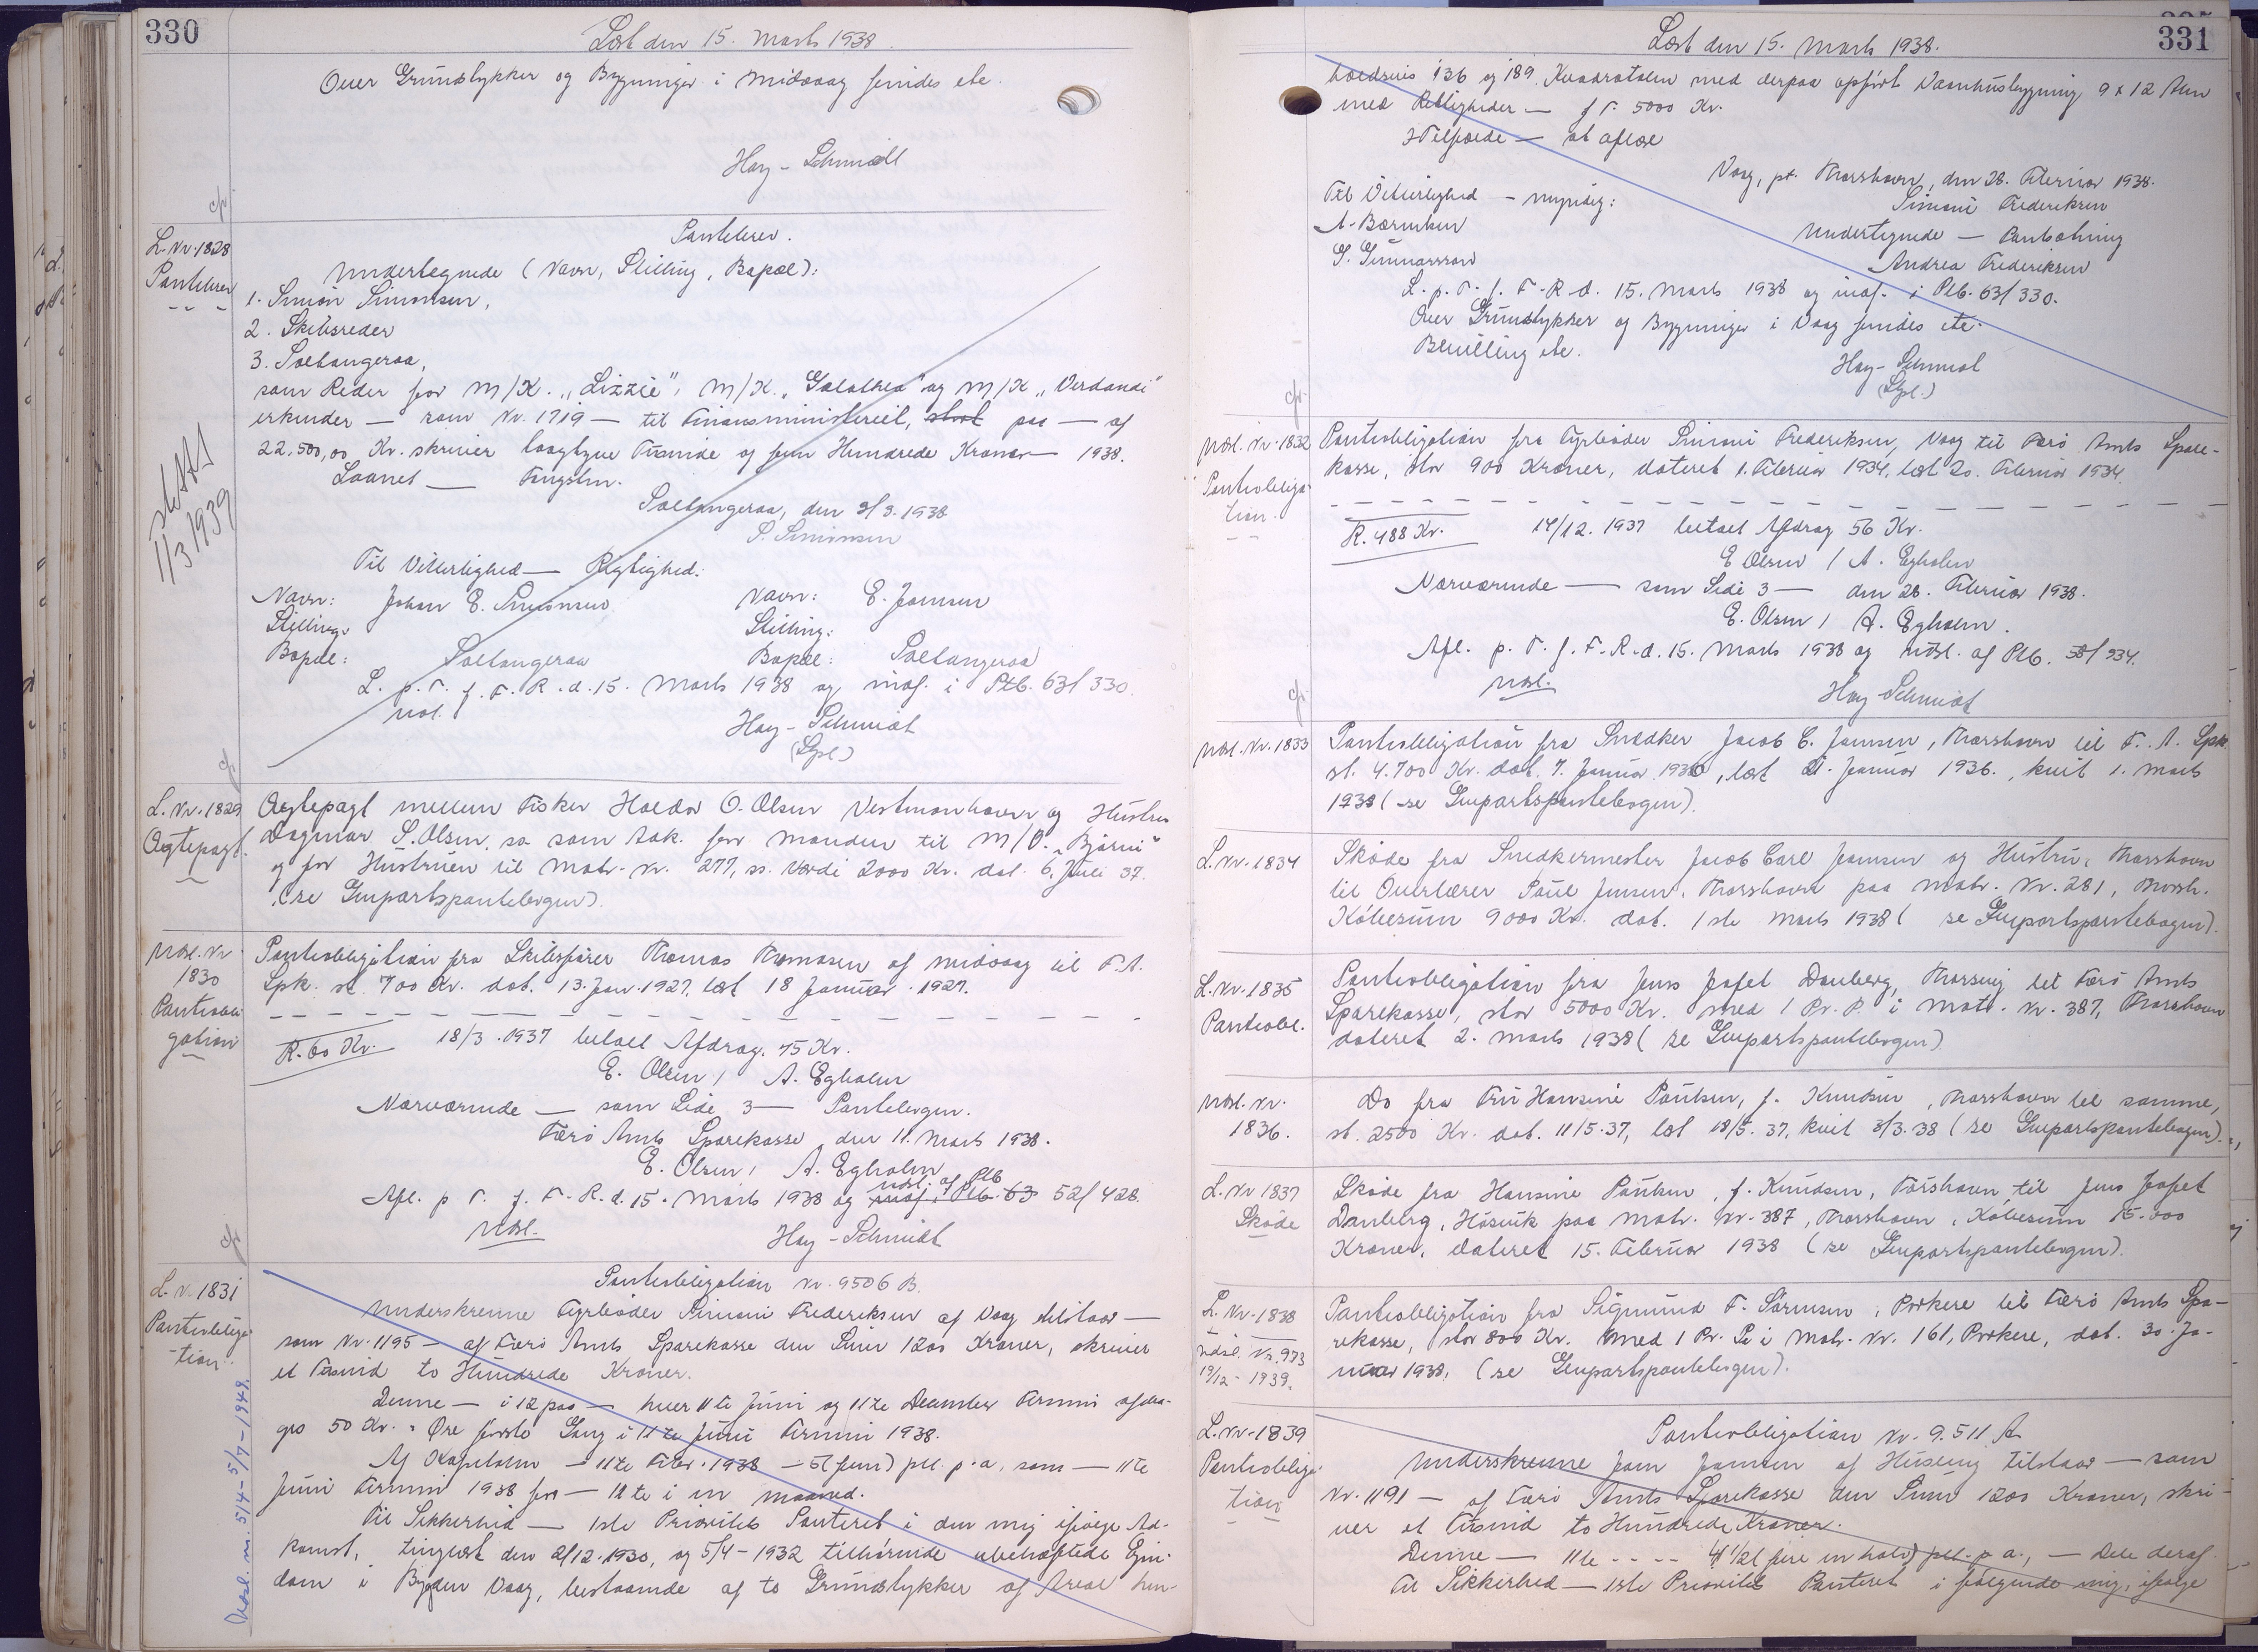 330
Læst den 15. Marts 1938.
Over Grundstykker og Bygninger i Midvaag findes ete.
Hay-Schmidt
cfr.
L. Nr. 1828
Pantebrev
Pantebrev.
Undertegnede (Navn, Stilling, Bopæl):
1. Simon Simonsen,
2. Skibsreder
3. Saltangeraa,
som Reder for M/K. "Lizzie", M/K. "Galathea" og M/K "Verdandi"
erkender — som Nr. 1719 — til Finansministeriet, stort paa — af
22.500,00 Kr. skriver toogtyve Tusinde og fem Hundrede Kroner — 1938.
Laanet — Tingstm.
Saltangeraa, den 9/3. 1938
S. Simonsen
slettet
1/3 1939
Til Vitterlighed — Rigtighed:
Navn: Johan E. Simonsen Navn: E. Jamsen
Stilling: Stilling:
Bopæl: Saltangeraa Bopæl: Saltangeraa
L. p. T. f. F. R. d. 15. Marts 1938 og indf. i Ptb. 63/330.
Udsl. Hay-Schmidt
(Spl.)
cfr.
L. Nr. 1829
Ægtepagt.
Ægtepagt mellem Fisker Haldor O. Olsen Vestmanhavn og Hustru
Dagmar S. Olsen, sa som Adk. for Manden til M/B. "Bjarni"
og for Hustruen til Matr. Nr. 277, ss. Værdi 2000 Kr. dat. 6. Juli 37.
(se Genpartspantebogen).
Udsl. Nr.
1830
Pantobli
gation
Pantobligation fra Skibsfører Thomas Thomasen af Midvaag til F. A.
Spk. st. 700 Kr. dat. 13. Jan. 1927, læst 18 Januar 1927.
R. 60 Kr. 18/3. 1937 betalt Afdrag. 75 Kr.
E. Olsen / A. Egholm
Nærværende — som Side 3 — Pantebogen.
Færø Amts Sparekasse, den 11. Marts 1938.
E. Olsen / A. Egholm
udsl. af Ptb
Afl. p. T. f. F. R. d. 15. Marts 1938 og indf. i Ptb. 63 52/428.
Udsl. Hay-Schmidt
cfr.
L. Nr. 1831
Pantobliga-
tion.
Udsl. nr. 514 - 5/7 - 1949.
Pantobligation Nr. 9506 B.
Underskrevne Fyrbøder Simoni Frederiksen af Vaag tilstaar —
som Nr. 1195 — af Færø Amts Sparekasse den Sum 1200 Kroner, skriver
et Tusind to Hundrede Kroner.
Denne — i 12 paa — hver 11te Juni og 11te December Termin afdra-
ges 50 Kr. " Øre første Gang i 11te Juni Termin 1938.
Af Kapitalen — 11te Febr. 1938 — 5 (fem) pct. p. a., som — 11te
Juni Termin 1938 for — 11te i en Maaned.
Til Sikkerhed — 1ste Prioritets Panteret i den mig ifølge Ad-
komst, tinglæst den 2/12. 1930, og 5/4 - 1932 tilhørende ubehæftede Ejen-
dom i Bygden Vaag, bestaaende af to Grundstykker af Areal hen-
331
Læst den 15. Marts 1938.
holdsvis 136 og 189 Kvadratalen med derpaa opført Vaanhusbygning 9 x 12 Alen
med Rettigheder — f. T. 5000 Kr.
I Tilfælde — at aflæse
Vaag, pt. Thorshavn, den 28. Februar 1938.
Til Vitterlighed — myndig: Simoni Frederiksen
A. Bærentsen Undertegnede — Pantsætning
G. Gunnarsson Andrea Frederiksen
L. p. T. f. F. R. d. 15. Marts 1938 og indf. i Ptb. 63/330.
Over Grundstykker og Bygninger i Vaag findes ete.
Bevilling ete.
Hay-Schmidt
(Spl.)
cfr.
Udsl. Nr. 1832
Pantobliga-
tion.
Pantobligation fra Fyrbøder Simoni Frederiksen, Vaag til Færø Amts Spare-
kasse, stor 900 Kroner, dateret 1. Februar 1934, læst 20. Februar 1934.
R. 488 Kr. 14/12. 1937 betalt Afdrag 56 Kr.
E Olsen / A. Egholm
Nærværende — som Side 3 — den 28. Februar 1938.
E. Olsen / A. Egholm.
Afl. p. T. f. F. R. d. 15. Marts 1938 og udsl. af Ptb. 58/934.
Udsl. Hay-Schmidt
cfr.
Udsl. Nr. 1833
Pantobligation fra Snedker Jacob C. Jamsen, Thorshavn til F. A. Spk
st. 4.700 Kr. dat. 7. Januar 1936, læst 21. Januar 1936., kvit 1. Marts
1938 (se Genpartspantebogen).
L. Nr. 1834
Skøde fra Snedkermester Jacob Carl Jamsen og Hustru, Thorshavn
til Overlærer Paul Jensen, Thorshavn paa Matr. Nr. 281, Thorsh.
Købesum 9000 Kr. dat. 1ste Marts 1938 (se Genpartspantebogen).
L. Nr. 1835
Pantobl.
Pantobligation fra Jens Jafet Danberg, Thorsvig til Færø Amts
Sparekasse, stor 5000 Kr. med 1 Pr. P. i Matr. Nr. 387, Thorshavn
dateret 2. Marts 1938 (se Genpartspantebogen)
Udsl. Nr.
1836.
Do fra Fru Hansine Poulsen, f. Knudsen, Thorshavn til samme,
st. 2500 Kr. dat. 11/5. 37, læst 18/5. 37, kvit 3/3. 38 (se Genpartspantebogen).
L. Nr 1837
Skøde
Skøde fra Hansine Poulsen, f. Knudsen, Torshavn, til Jens Jafet
Danberg, Hósvik paa Matr. Nr. 387, Thorshavn, Købesum 15.000
Kroner, dateret 15. Februar 1938 (se Genpartspantebogen).
L. Nr. 1838
Udsl. Nr. 973
19/12 - 1939.
Pantobligation fra Sigmund F. Sørensen, Porkere til Færø Amts Spa-
rekasse, stor 800 Kr. med 1 Pr. P. i Matr. Nr. 161, Porkere, dat. 30. Ja-
nuar 1938, (se Genpartspantebogen).
L. Nr. 1839
Pantobliga-
tion
Pantobligation Nr. 9.511 A
Underskrevne Joen Joensen af Husevig tilstaar — som
Nr. 1191 — af Færø Amts Sparekasse den Sum 1200 Kroner, skri-
ver et Tusind to Hundrede Kroner.
Denne — 11te - - - - 4 1/2 (fire en halv) pct. p. a., — Dele deraf.
Til Sikkerhed — 1ste Prioritets Panteret i følgende mig, ifølge